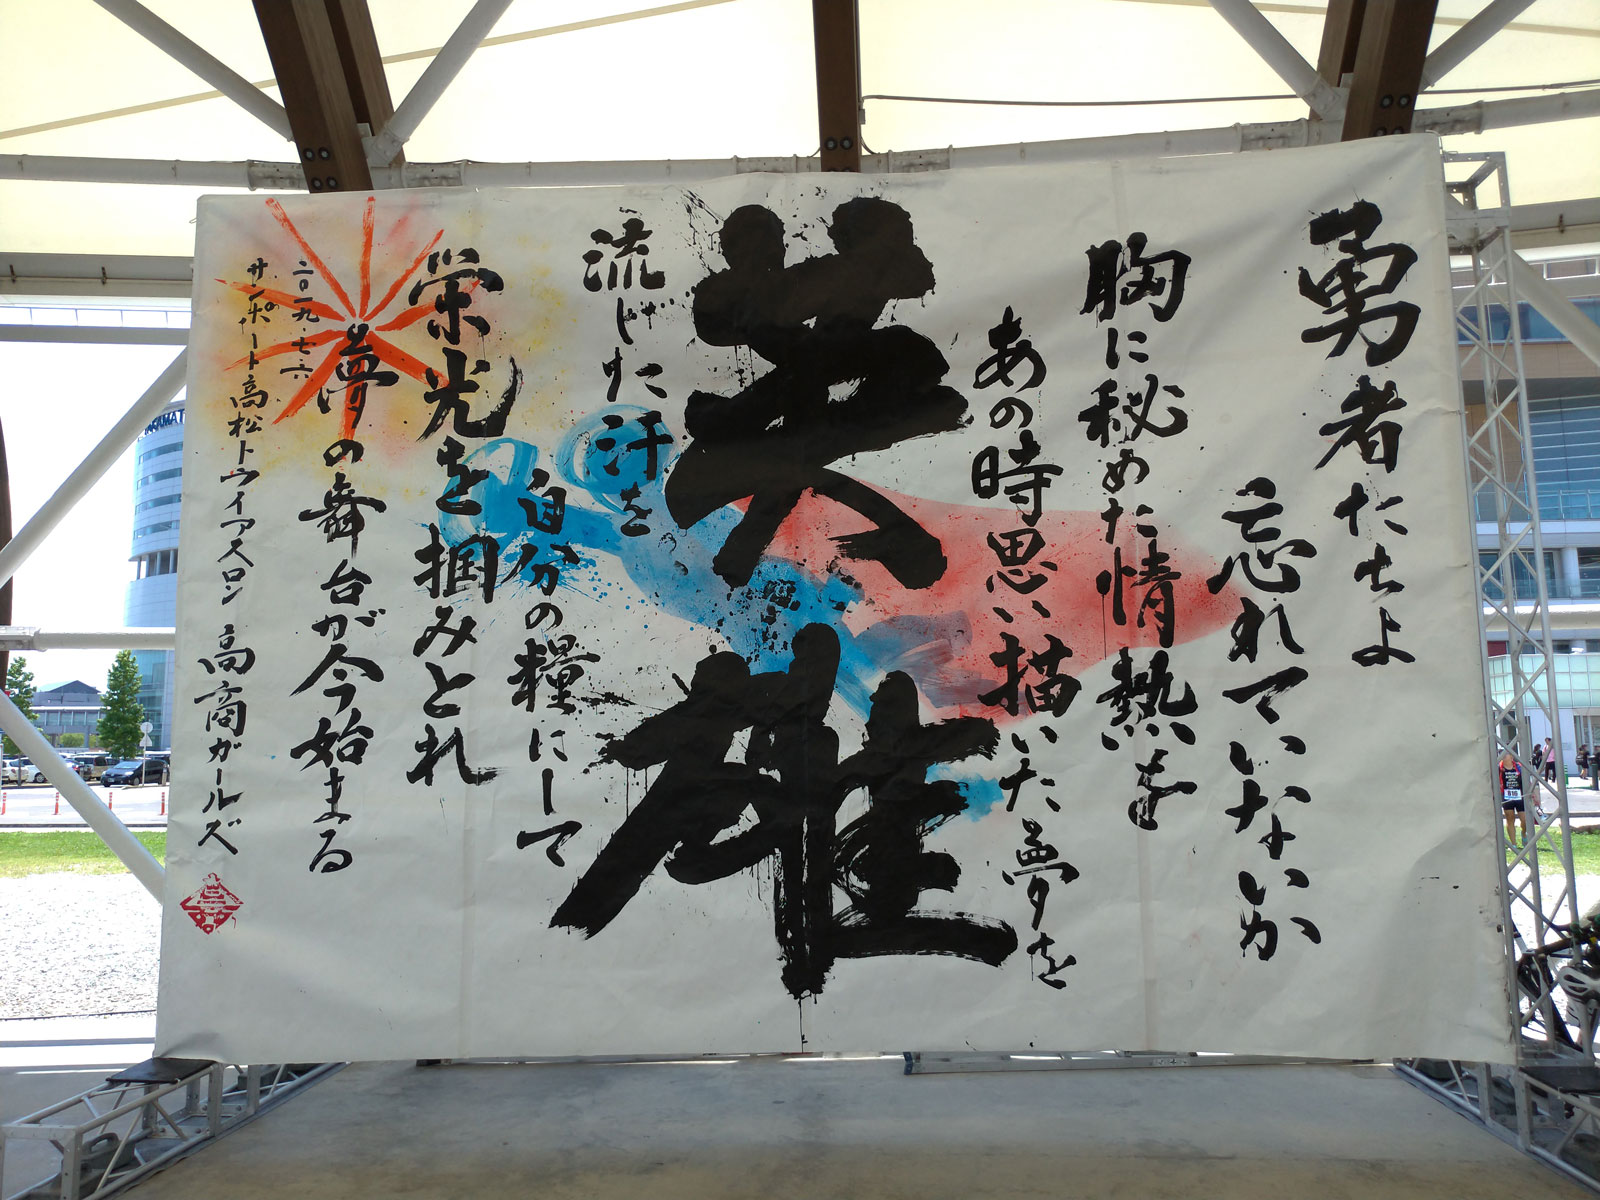 勇者たちよ
忘れていないか
胸に秘めた情熱を
あの時思い描いた夢を
英雄
流した汗を
自分の糧にして
栄光を掴みとれ
夢の舞台が今始まる
二〇一九.七.六
サンポート高松トライアスロン
高商ガールズ